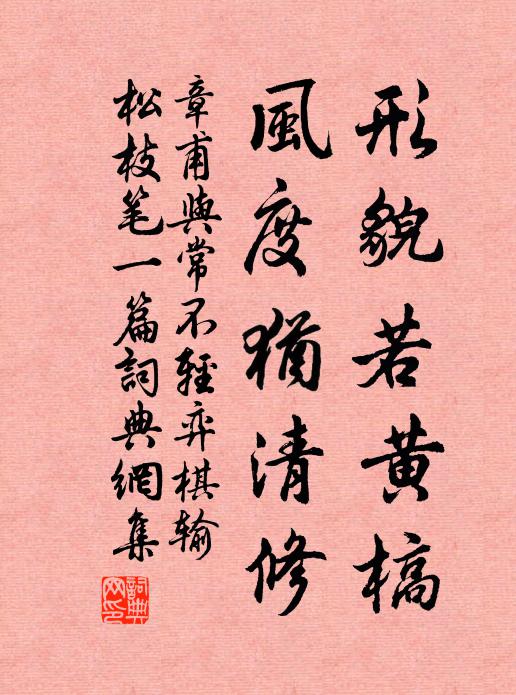 形貌若黄槁
風度猶清修
章甫與常不輕弈棋输
松枝笔一篇詞典網集
詞典網印